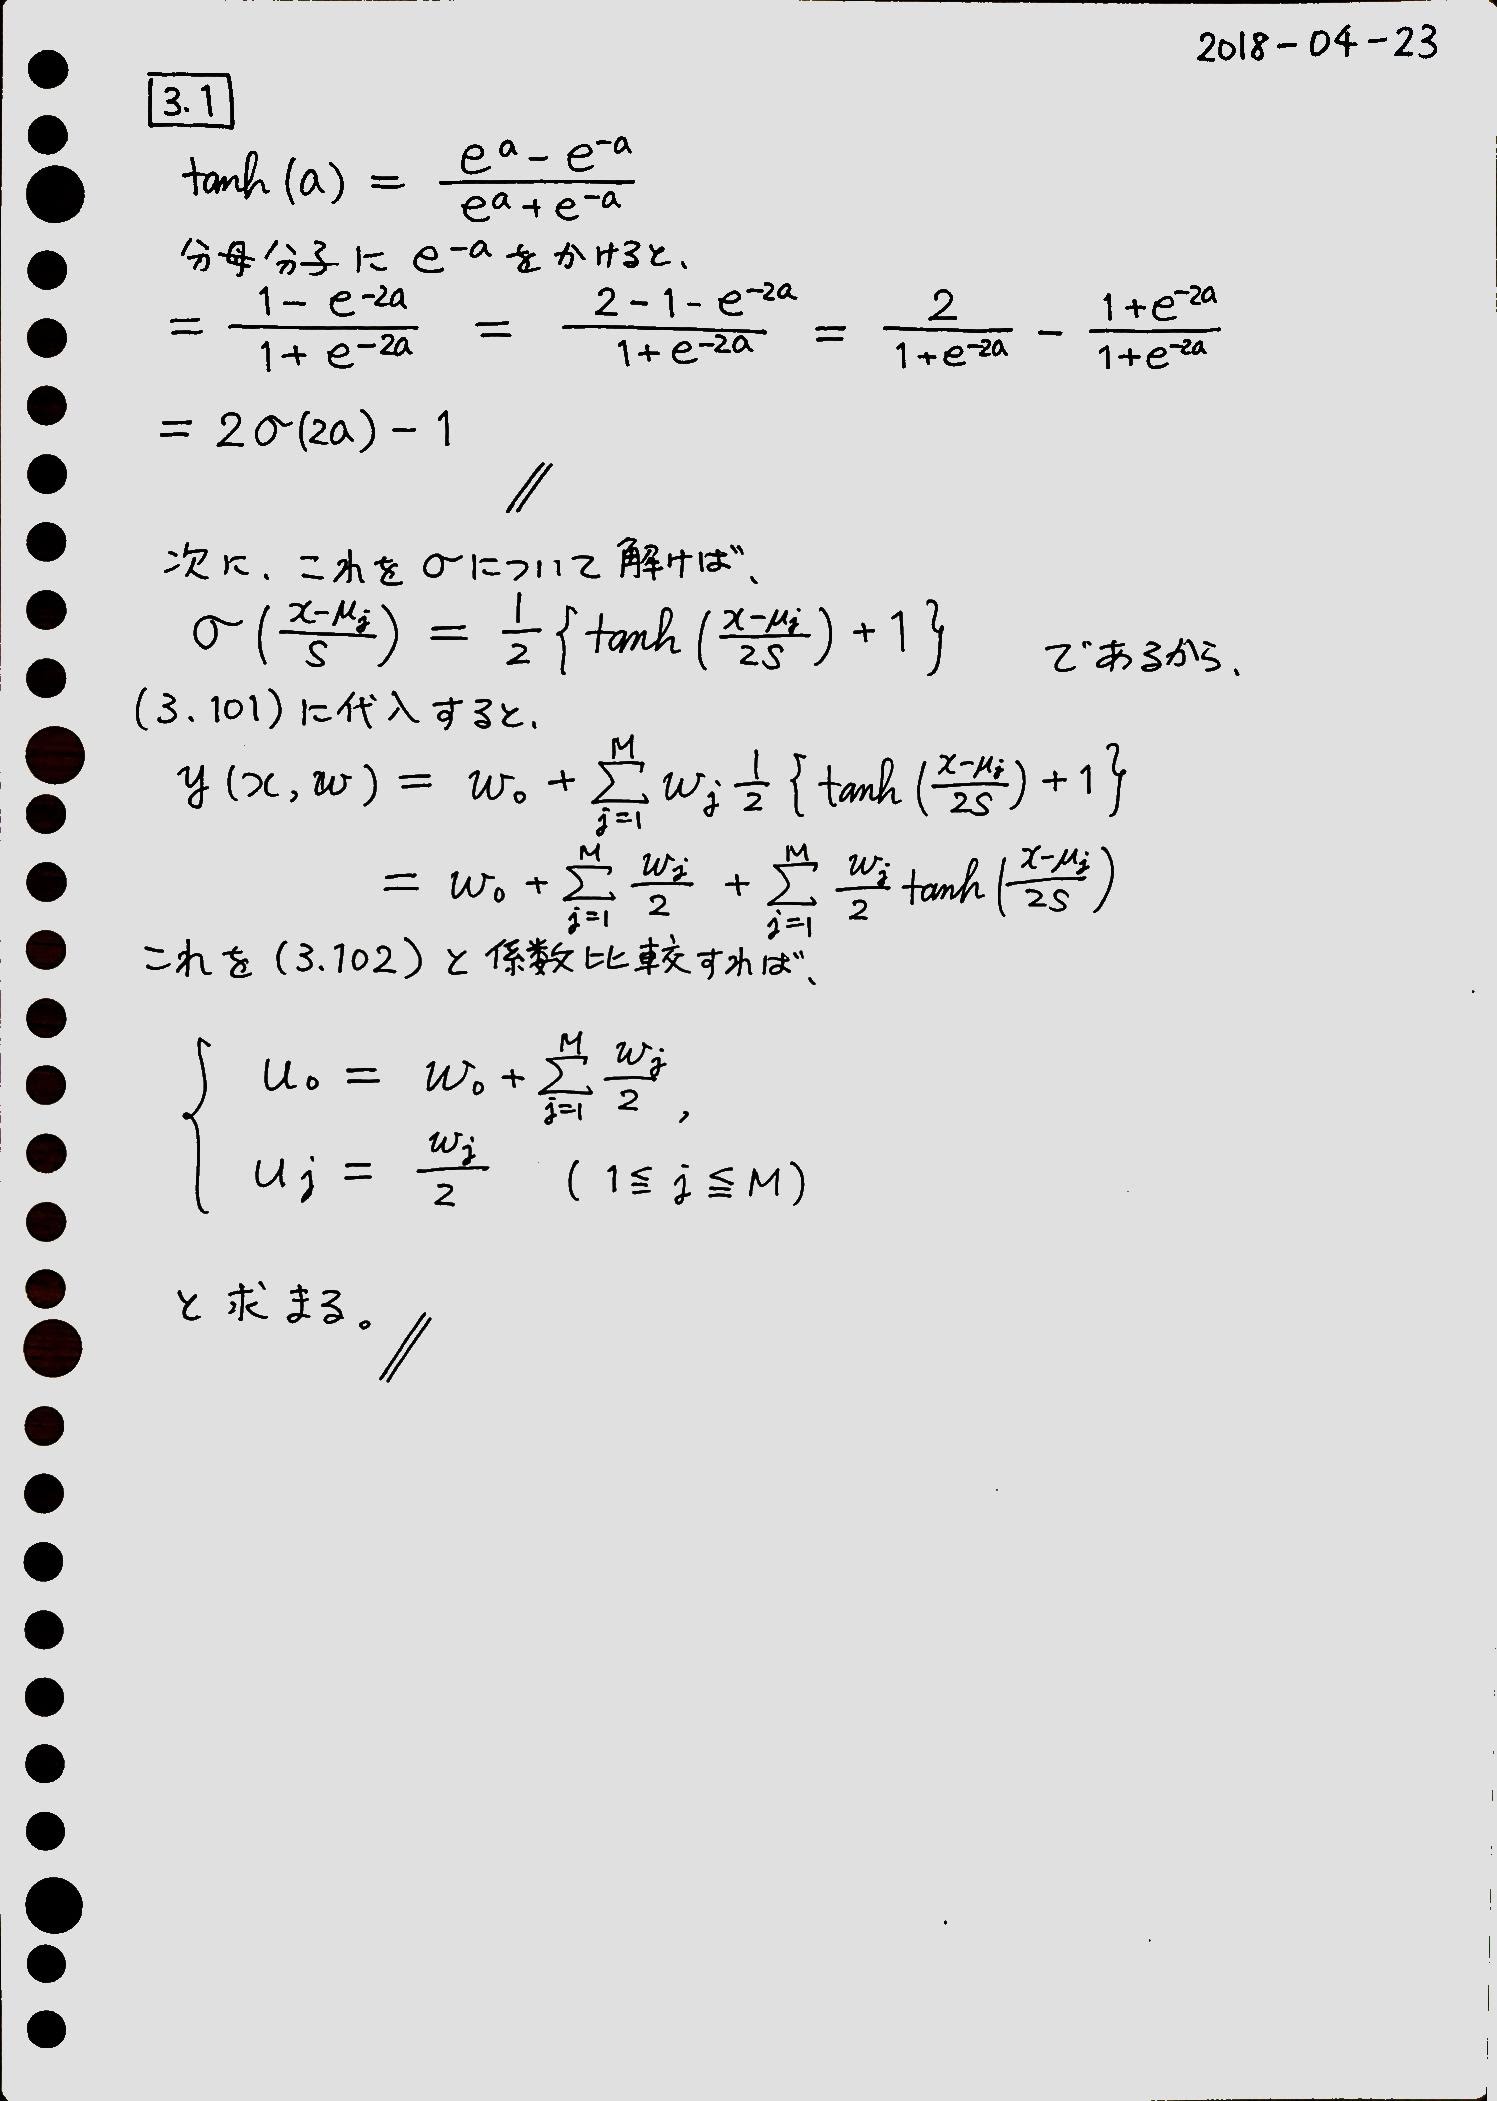 2018-04-23
3.1
tanh(a) = \frac{e^{a} - e^{-a}}{e^{a} + e^{-a}}
分母分子に e^{-a} をかけると、
= \frac{1 - e^{-2a}}{1 + e^{-2a}} = \frac{2 - 1 - e^{-2a}}{1 + e^{-2a}} = \frac{2}{1 + e^{-2a}} - \frac{1 + e^{-2a}}{1 + e^{-2a}}
= 2σ(2a) - 1
//
次に、これを σ について解けば、
σ(\frac{x-μ_j}{s}) = \frac{1}{2}{tanh(\frac{x-μ_j}{2s}) + 1} であるから、
(3.101)に代入すると、
y(x, w) = w_0 + \sum_{j=1}^{M} w_j \frac{1}{2}{tanh(\frac{x-μ_j}{2s}) + 1}
= w_0 + \sum_{j=1}^{M} \frac{w_j}{2} + \sum_{j=1}^{M} \frac{w_j}{2} tanh(\frac{x-μ_j}{2s})
これを (3.102) と係数比較すれば、
{ u_0 = w_0 + \sum_{j=1}^{M} \frac{w_j}{2},
u_j = \frac{w_j}{2} (1 ≦ j ≦ M)
と求まる。 //